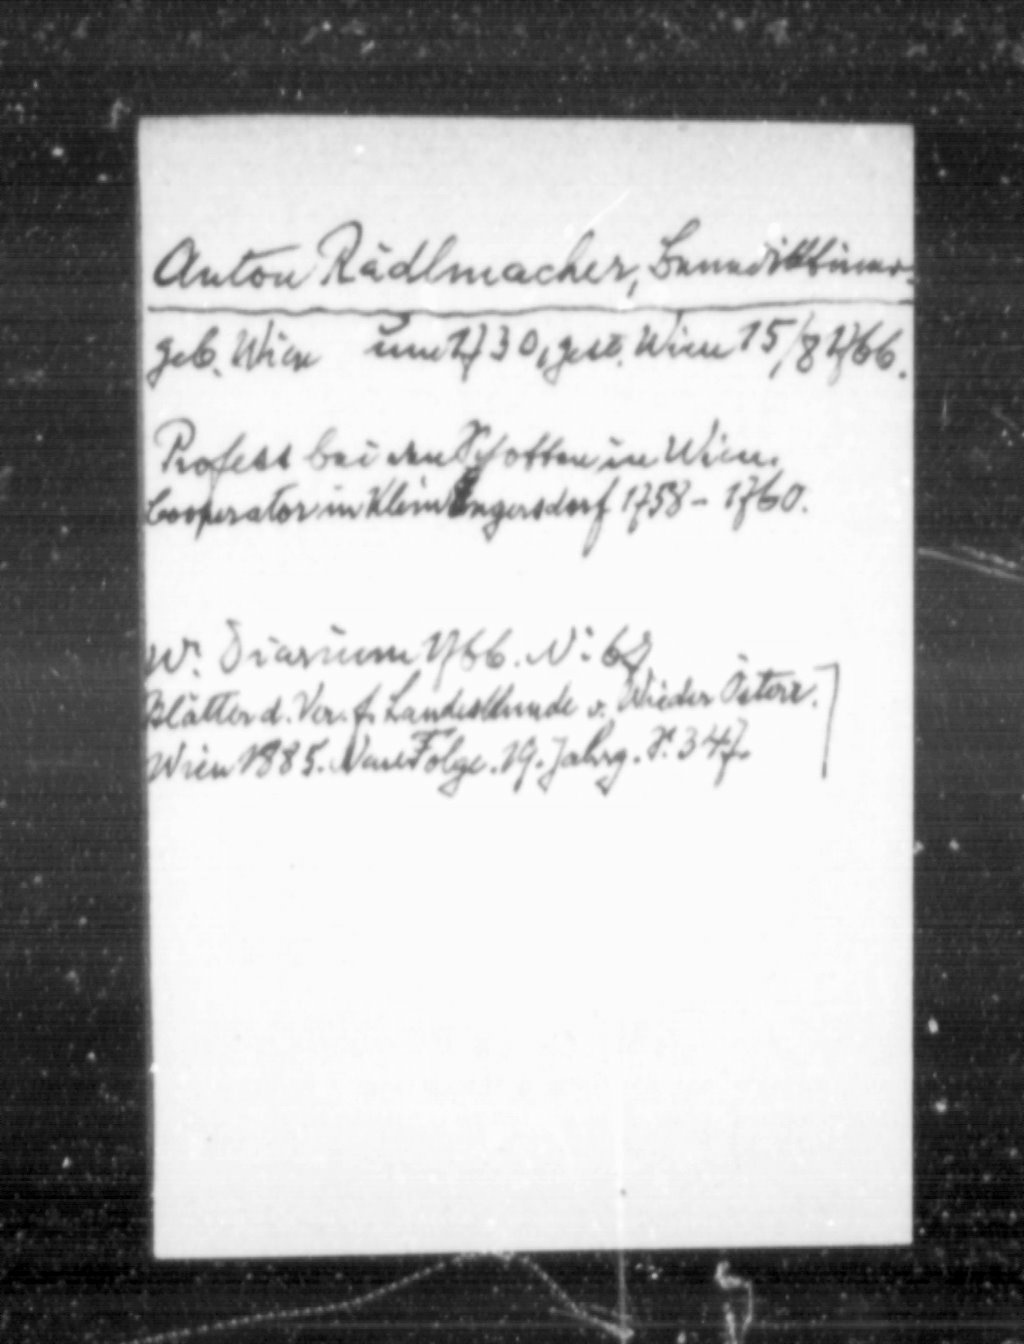 Anton Rädlmacher, Benediktiner.
geb. Wien um 1730, gest. Wien 15/8 1766.
Profess bei den Schotten in Wien.
Cooperator in Klein Engersdorf 1758 - 1760.
W. Diarium 1766. N:
Blätter d. Ver. f. Landeskunde v. Nieder Österr.
Wien 1885. Neue Folge. 19. Jahrg. S. 347.